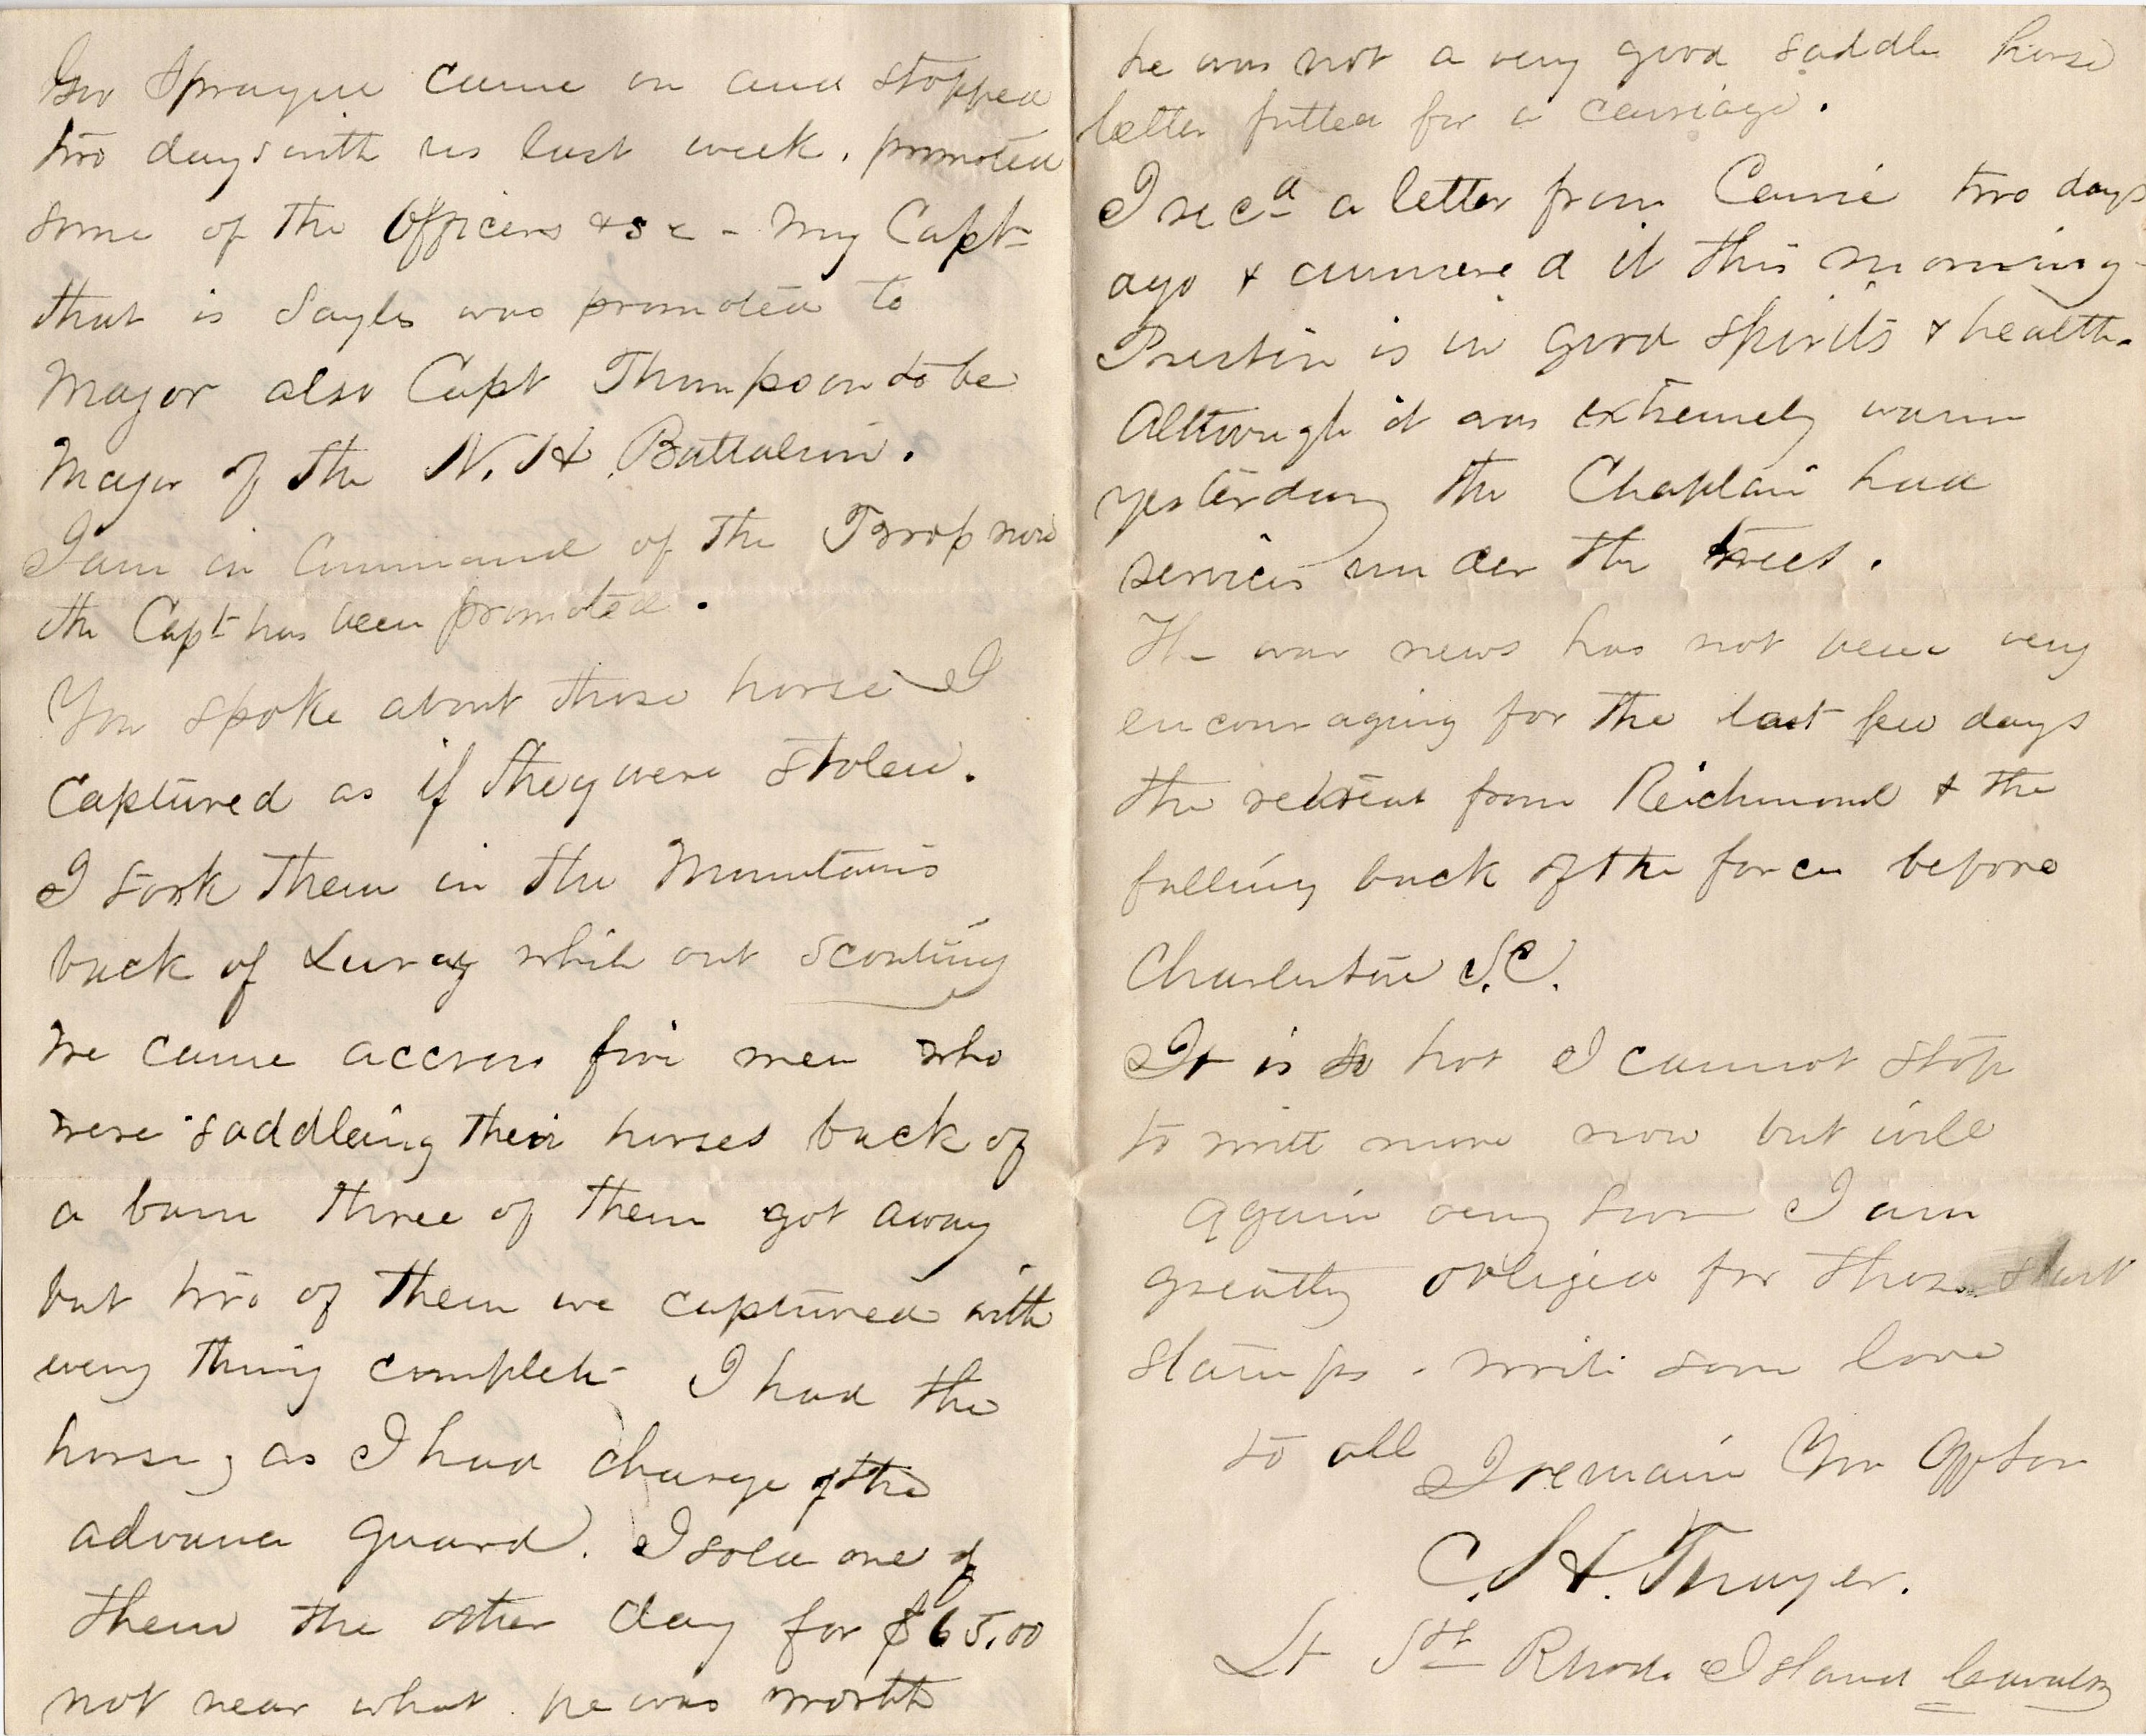 Gov Sprague came on and stopped
two days with us last week. promoted
some of the officers &sc - My Capt
that is Sayles was promoted to
Major also Capt Thompson to be
Major of the N. H. Battalion.
I am in Command of the Troop now
the Capt has been promoted.
You spoke about those horse I
Captured as if they were stolen.
I took them in the Mountains
back of Luray while out scouting
We came accross five men who
were saddleing their horses back of
a barn three of them got away
but two of them we captured with
every thing complete I had the
horse, as I had charge of the
advance guard. I sold one of
them the other day for $65.00
not near what he was worth
he was not a very good saddle horse
better fitted for a carriage.
I recd a letter from Carrie two days
ago & answered it this morning
Preston is in good spirits & health.
Although it was extremely warm
yesterday the Chaplain had
services under the trees.
The war news has not been very
encouraging for the last few days
the retreat from Reichmond & the
falling back of the forces before
Charleston S.C.
It is so hot I cannot stop
to write more now but will
again very soon I am
greatly obliged for those
stamps. write soon love
to all I remain Your Son
C. H. Thayer.
Lt Rhode Island Cavalry